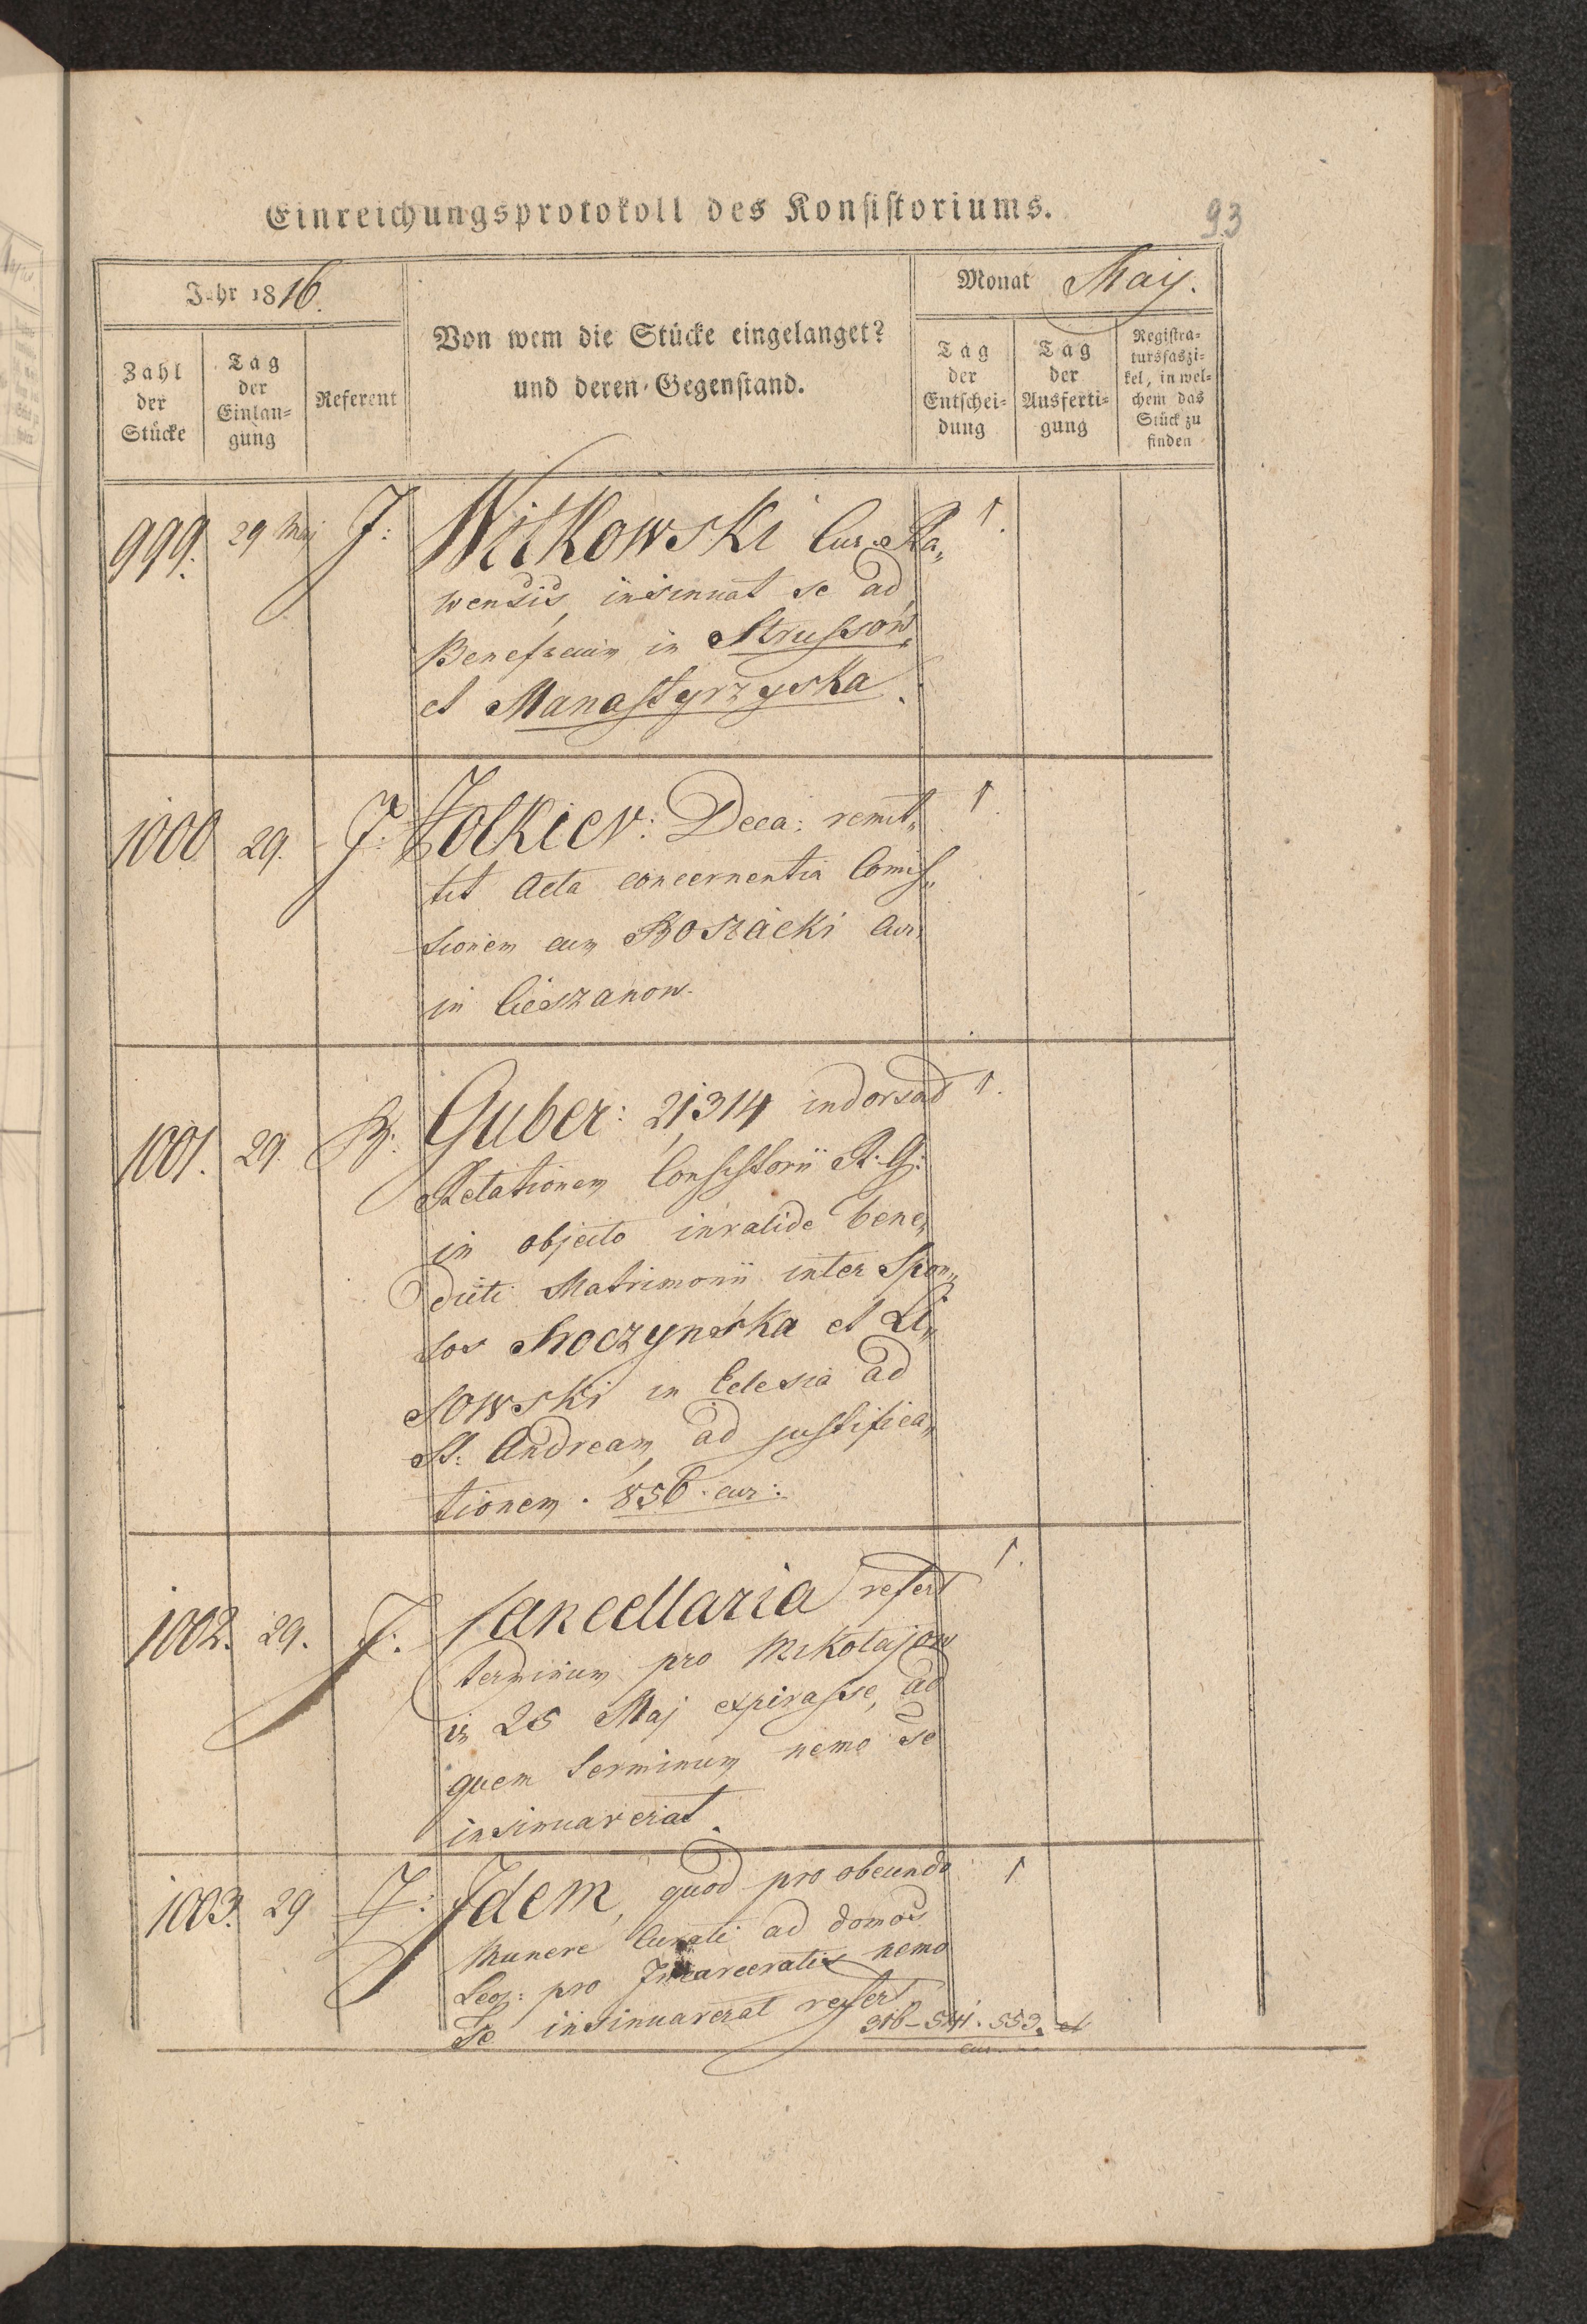 Einreichungsprotokoll des Konsistoriums.
93
Jahr 1816.
Monat Maij.
Zahl der Stücke
Tag der Einlan= gung
Referent
Von wem die Stücke eingelanget?
und deren Gegenstand.
Tag der Entschei= dung
Tag der Ausferti= gung
Registra= tursfaszi= kel, in wel= chem das Stück zu finden
999. 29 Maj J: Witkowski Cur: Ra„ 1.
wensis, insinuat se ad
Beneficium in Strussow,
et Manastyrzyska.
1000 29. J: Zolkiew: Deca: remit„ 1.
tit Acta concernentia Comis„
sionem cum Boszacki Cur:
in Cieszanow.
1001. 29. B. Guber: 21314 indorsat 1.
Relationem Consistorii R. G:
in objecto invalide bene„
dicti Matrimonii inter Spon„
sos Kroczynska et Li„
sowski in Eclesia ad
St: Andream, ad justifica„
tionem. 856. cur:
1002. 29. J. Cancellaria refert 1.
terminum pro Mikołajow
in 25 Maj expirasse, ad
quem terminum nemo se
insinuaverat.
1003. 29 J: Idem, quod pro obeundo 1
munere Curati ad domos
Leop: pro Incarceratis nemo
se insinuaverat refert
316-541. 553. et
cur.